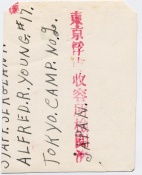 STAFF. SERGEANT.
ALFRED.R.YOUNG.#17.
TOKYO.CAMP.No.2.
JAPAN.
東京俘
收容所